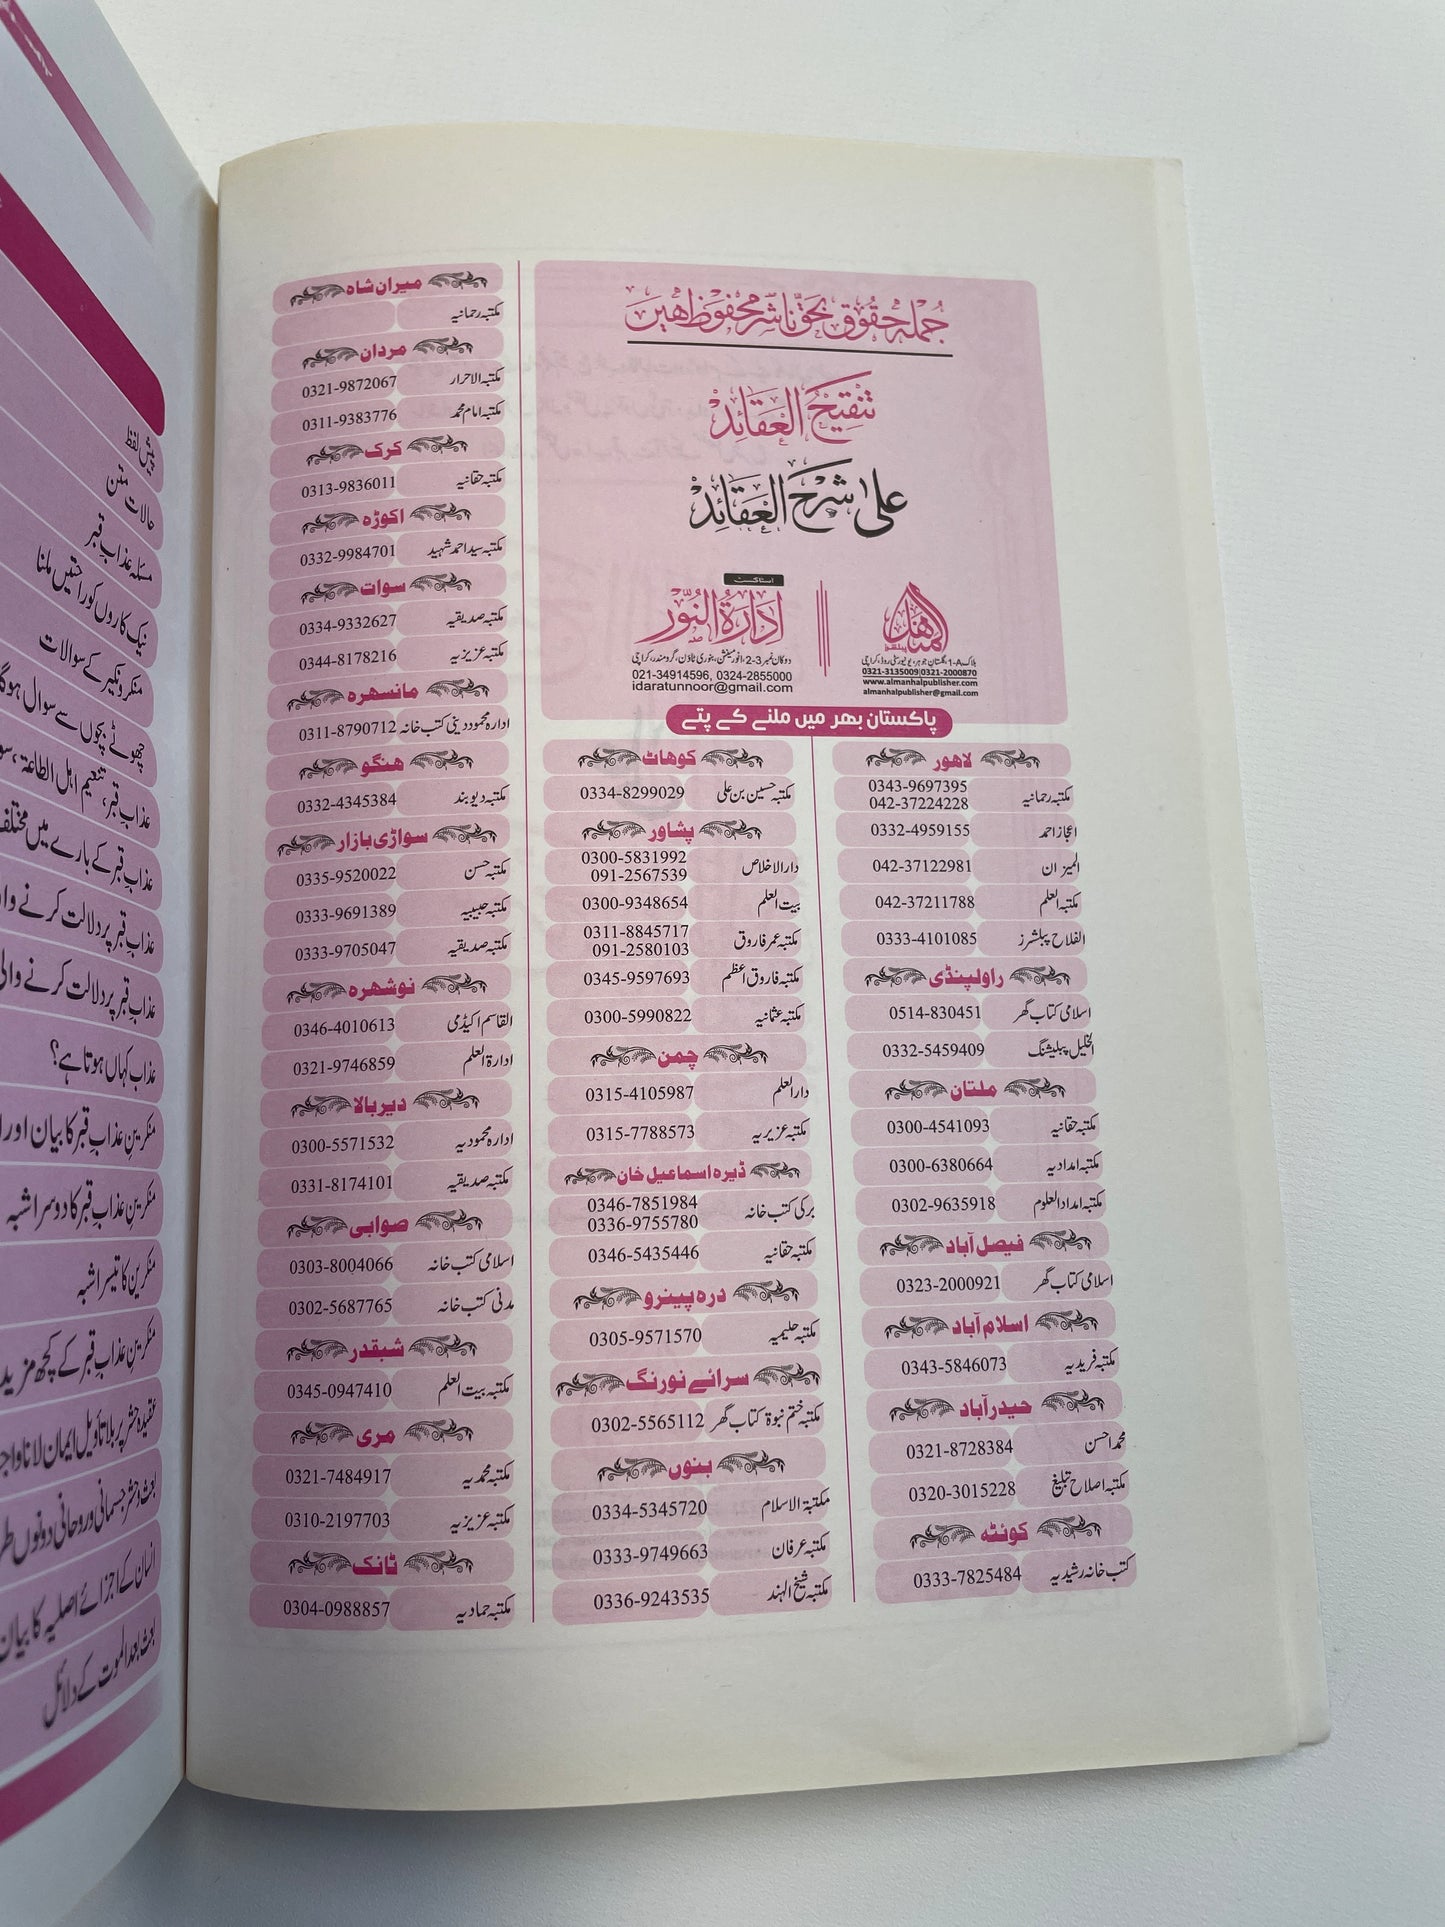 جملہ حقوق بحق ناشر محفوظ ہیں
تنقیح العقائد
علیٰ شرح العقائد
المنہل
پبلشر
بلاک A-1، گلستان جوہر، یونیورسٹی روڈ، کراچی
0321-3135009|0321-2000870
www.almanhalpublisher.com
almanhalpublisher@gmail.com
اسٹاکسٹ
ادارۃ النور
دوکان نمبر 3-2، انور مینشن، بنوری ٹاؤن، گرومندر، کراچی
021-34914596, 0324-2855000
idaratunnoor@gmail.com
پاکستان بھر میں ملنے کے پتے
لاہور
مکتبہ رحمانیہ 0343-9697395
042-37224228
اعجاز احمد 0332-4959155
المیزان 042-37122981
مکتبۃ العلم 042-37211788
الفلاح پبلشرز 0333-4101085
راولپنڈی
اسلامی کتاب گھر 0514-830451
الخلیل پبلیشنگ 0332-5459409
ملتان
مکتبہ حقانیہ 0300-4541093
مکتبہ امدادیہ 0300-6380664
مکتبہ امداد العلوم 0302-9635918
فیصل آباد
اسلامی کتاب گھر 0323-2000921
اسلام آباد
مکتبہ فریدیہ 0343-5846073
حیدرآباد
محمد احسن 0321-8728384
مکتبہ اصلاح تبلیغ 0320-3015228
کوئٹہ
کتب خانہ رشیدیہ 0333-7825484
کوہاٹ
مکتبہ حسین بن علی 0334-8299029
پشاور
دارالاخلاص 0300-5831992
091-2567539
بیت العلم 0300-9348654
مکتبہ عمر فاروق 0311-8845717
091-2580103
مکتبہ فاروق اعظم 0345-9597693
مکتبہ عثمانیہ 0300-5990822
چمن
دارالعلم 0315-4105987
مکتبہ عزیزیہ 0315-7788573
ڈیرہ اسماعیل خان
برکی کتب خانہ 0346-7851984
0336-9755780
مکتبہ حقانیہ 0346-5435446
درہ پینرو
مکتبہ حلیمیہ 0305-9571570
سرائے نورنگ
مکتبہ ختم نبوۃ کتاب گھر 0302-5565112
بنوں
مکتبۃ الاسلام 0334-5345720
مکتبہ عرفان 0333-9749663
مکتبہ شیخ الہند 0336-9243535
میران شاہ
مکتبہ رحمانیہ
مردان
مکتبہ الاحرار 0321-9872067
مکتبہ امام محمد 0311-9383776
کرک
مکتبہ حقانیہ 0313-9836011
اکوڑہ
مکتبہ سید احمد شہید 0332-9984701
سوات
مکتبہ صدیقیہ 0334-9332627
مکتبہ عزیزیہ 0344-8178216
مانسہرہ
ادارہ محمود دینی کتب خانہ 0311-8790712
ہنگو
مکتبہ دیوبند 0332-4345384
سواڑی بازار
مکتبہ حسن 0335-9520022
مکتبہ حبیبیہ 0333-9691389
مکتبہ صدیقیہ 0333-9705047
نوشہرہ
القاسم اکیڈمی 0346-4010613
ادارۃ العلم 0321-9746859
دیر بالا
ادارہ محمودیہ 0300-5571532
مکتبہ صدیقیہ 0331-8174101
صوابی
اسلامی کتب خانہ 0303-8004066
مدنی کتب خانہ 0302-5687765
شبقدر
مکتبہ بیت العلم 0345-0947410
مری
مکتبہ محمدیہ 0321-7484917
مکتبہ عزیزیہ 0310-2197703
ٹانک
مکتبہ حمادیہ 0304-0988857
پیش لفظ
حالات متن
مسئلہ عذاب قبر
نیک کاروں کو راحتیں ملنا
منکر و نکیر کے سوالات
چھوٹے بچوں سے سوال ہوگا
عذاب قبر، تنعیم اہل الطاعۃ،
عذاب قبر کے بارے میں مختلف
عذاب قبر پر دلالت کرنے
عذاب قبر پر دلالت کرنے والی
عذاب کہاں ہوتا ہے؟
منکرین عذاب قبر کا بیان اور
منکرین عذاب قبر کا دوسرا شبہ
منکرین کا تیسرا شبہ
منکرین عذاب قبر کے کچھ مزید
عقیدہ حشر پر بلا تأویل ایمان لانا
بعث و حشر جسمانی و روحانی دونوں
انسان کے اجزائے اصلیہ کا بیان
بعث بعد الموت کے دلائل